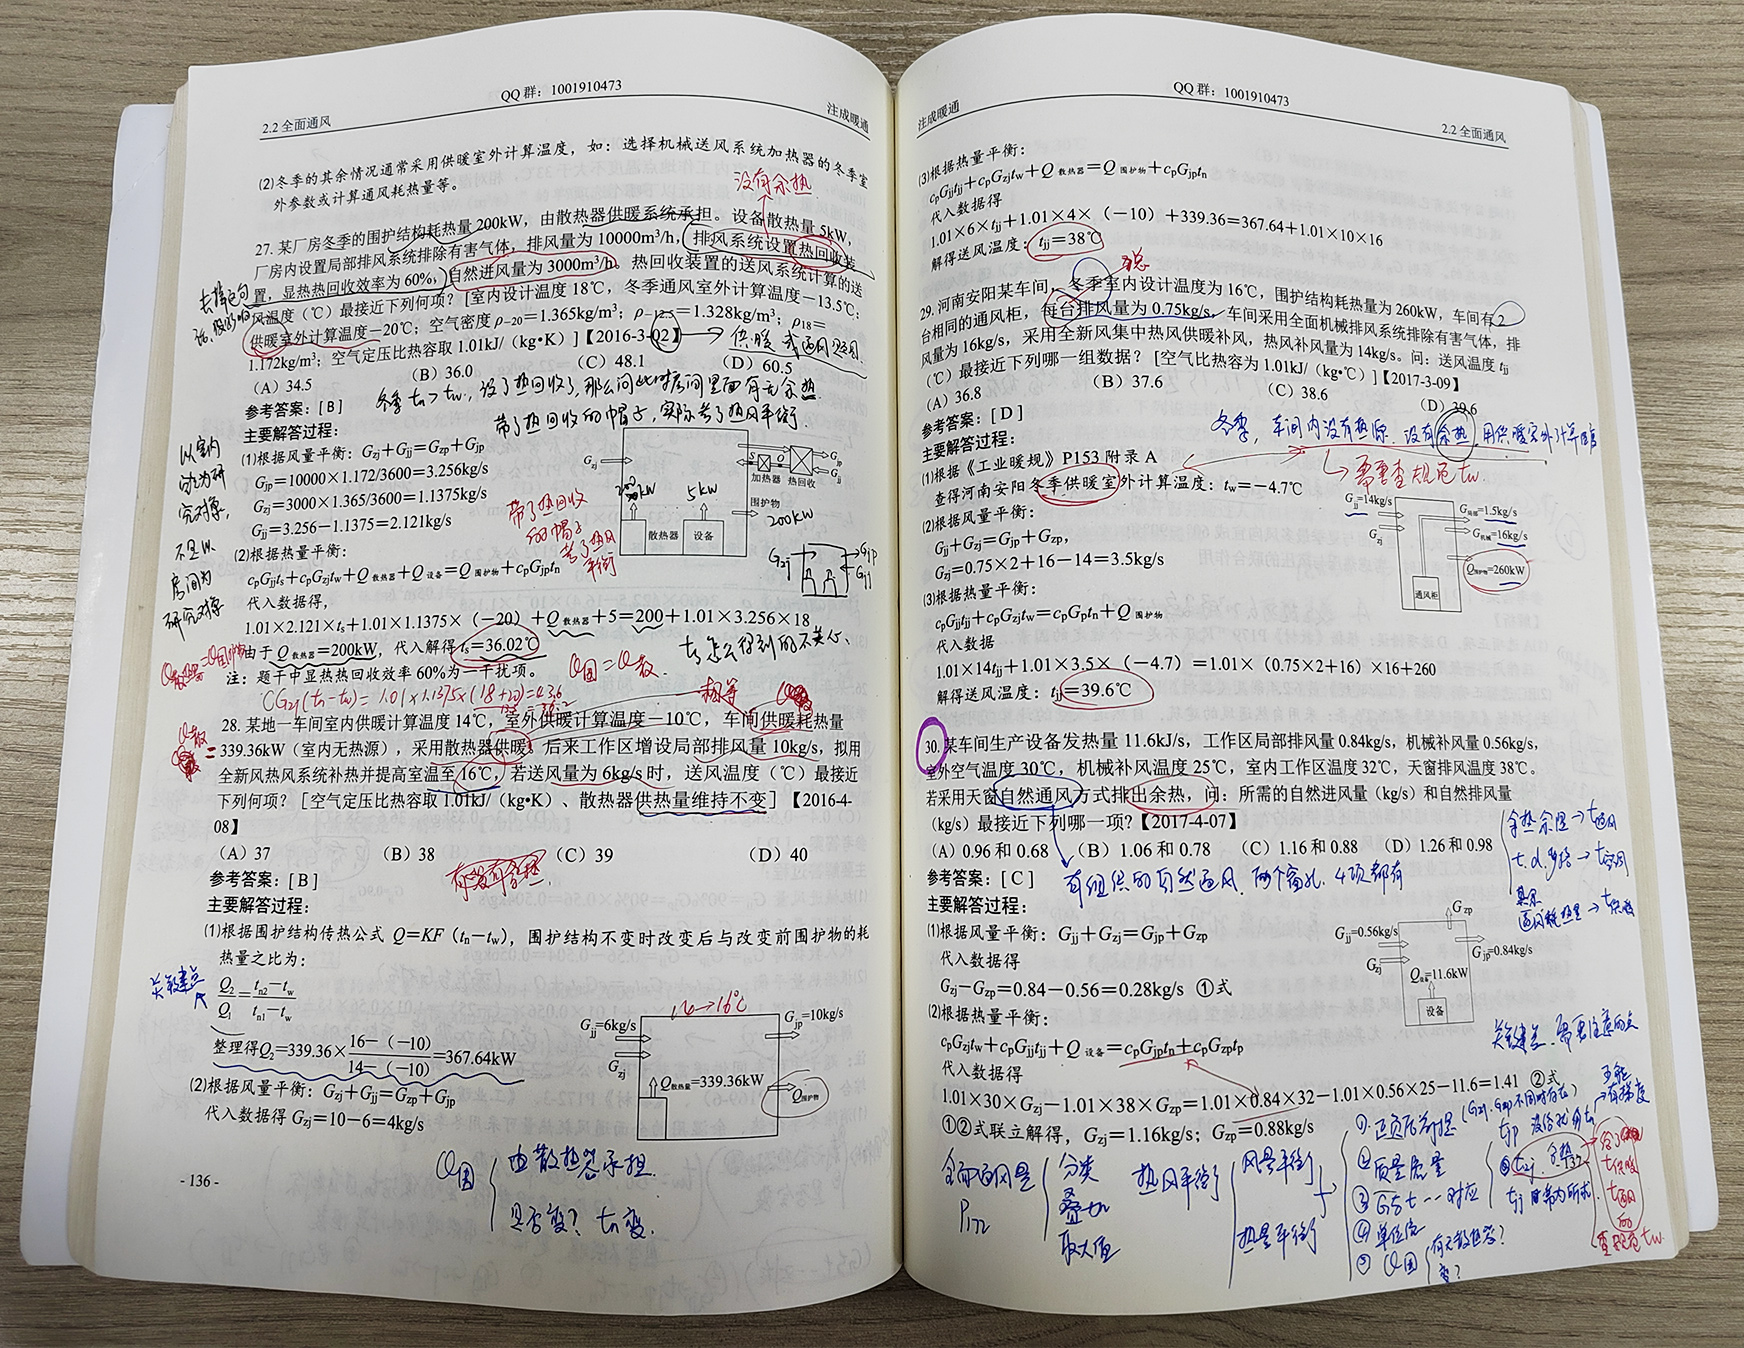 QQ 群：1001910473
2.2 全面通风
注成暖通
(2)冬季的其余情况通常采用供暖室外计算温度，如：选择机械送风系统加热器的冬季室
外参数或计算通风耗热量等。
没有余热
27. 某厂房冬季的围护结构耗热量 200kW，由散热器供暖系统承担。设备散热量 5kW，
厂房内设置局部排风系统排除有害气体，排风量为 10000m³/h，排风系统设置热回收装
置，显热热回收效率为 60%，自然进风量为 3000m³/h。热回收装置的送风系统计算的送
风温度（℃）最接近下列何项？[室内设计温度 18℃，冬季通风室外计算温度－13.5℃；
供暖室外计算温度－20℃；空气密度ρ-20＝1.365kg/m³；ρ-13.5＝1.328kg/m³；ρ18＝
1.172kg/m³；空气定压比热容取 1.01kJ/（kg•K）]【2016-3-02】
(A) 34.5 (B) 36.0 (C) 48.1 (D) 60.5
参考答案：[ B ]
冬季 tn＞tw，设了热回收了，那么问此时房间里面有无余热
带了热回收的帽子，实际考了热风平衡.
主要解答过程：
(1)根据风量平衡：Gzj＋Gjj＝Gzp＋Gjp
Gjp＝10000×1.172/3600＝3.256kg/s
Gzj＝3000×1.365/3600＝1.1375kg/s
Gjj＝3.256－1.1375＝2.121kg/s
(2)根据热量平衡：
cpGjjts＋cpGzjtw＋Q 散热器＋Q 设备＝Q 围护物＋cpGjptn
代入数据得，
1.01×2.121×ts＋1.01×1.1375×（－20）＋Q 散热器＋5＝200＋1.01×3.256×18
由于 Q 散热器＝200kW，代入解得 ts＝36.02℃
注：题干中显热热回收效率 60%为一干扰项。
以室内
为研
究对象，
不是以
房间为
研究对象
带了热回收
的帽子
考了热风
平衡
Gzj
S
Q
Gjp
Gjj
加热器 热回收
5kW
围护物
200kW
散热器
设备
Gzj
Gjp
Gjj
ts怎么得到的不关心、
Q围＝Q散.
相等
28. 某地一车间室内供暖计算温度 14℃，室外供暖计算温度－10℃，车间供暖耗热量
339.36kW（室内无热源），采用散热器供暖。后来工作区增设局部排风量 10kg/s，拟用
全新风热风系统补热并提高室温至 16℃，若送风量为 6kg/s 时，送风温度（℃）最接近
下列何项？[空气定压比热容取 1.01kJ/（kg•K）、散热器供热量维持不变]【2016-4-
08】
(A) 37 (B) 38 (C) 39 (D) 40
参考答案：[ B ]
有没有余热.
主要解答过程：
(1)根据围护结构传热公式 Q＝KF（tn－tw），围护结构不变时改变后与改变前围护物的耗
热量之比为：
关键点
Q2/Q1＝(tn2－tw)/(tn1－tw)
整理得Q2＝339.36×(16－（－10）)/(14－（－10）)＝367.64kW
(2)根据风量平衡：Gzj＋Gjj＝Gzp＋Gjp
代入数据得 Gzj＝10－6＝4kg/s
14→16℃
Gjj＝6kg/s
Gzj
Gjp＝10kg/s
Q散热量＝339.36kW
Q围护物
Q围
由散热器承担.
是否变？ tn变.
- 136 -
QQ 群：1001910473
注成暖通
2.2 全面通风
(3)根据热量平衡：
cpGjjtjj＋cpGzjtw＋Q 散热器＝Q 围护物＋cpGjptn
代入数据得
1.01×6×tjj＋1.01×4×（－10）＋339.36＝367.64＋1.01×10×16
解得送风温度：tjj＝38℃
总
29. 河南安阳某车间，冬季室内设计温度为 16℃，围护结构耗热量为 260kW，车间有 2
台相同的通风柜，每台排风量为 0.75kg/s，车间采用全面机械排风系统排除有害气体，排
风量为 16kg/s，采用全新风集中热风供暖补风，热风补风量为 14kg/s。问：送风温度 tjj
（℃）最接近下列哪一组数据？ [空气比热容为 1.01kJ/（kg•℃）]【2017-3-09】
(A) 36.8 (B) 37.6 (C) 38.6 (D) 39.6
参考答案：[ D ]
冬季，车间内没有热源. 没有余热. 用供暖室外计算温度
主要解答过程：
(1)根据《工业暖规》P153 附录 A
查得河南安阳冬季供暖室外计算温度：tw＝－4.7℃
需要查规范tw.
(2)根据风量平衡：
Gjj＋Gzj＝Gjp＋Gzp，
Gzj＝0.75×2＋16－14＝3.5kg/s
(3)根据热量平衡：
cpGjjtjj＋cpGzjtw＝cpGptn＋Q 围护物
代入数据
1.01×14tjj＋1.01×3.5×（－4.7）＝1.01×（0.75×2＋16）×16＋260
解得送风温度：tjj＝39.6℃
Gjj＝14kg/s
Gzj
G局部＝1.5kg/s
G机械＝16kg/s
Q围护物＝260kW
通风柜
30. 某车间生产设备发热量 11.6kJ/s，工作区局部排风量 0.84kg/s，机械补风量 0.56kg/s，
室外空气温度 30℃，机械补风温度 25℃，室内工作区温度 32℃，天窗排风温度 38℃。
若采用天窗自然通风方式排出余热，问：所需的自然进风量（kg/s）和自然排风量
（kg/s）最接近下列哪一项？【2017-4-07】
(A) 0.96 和 0.68 (B) 1.06 和 0.78 (C) 1.16 和 0.88 (D) 1.26 和 0.98
参考答案：[ C ]
有组织的自然通风. 两个窗孔. 4项都有
余热余湿→t通风
主要解答过程：
(1)根据风量平衡：Gjj＋Gzj＝Gjp＋Gzp
代入数据得
Gzj－Gzp＝0.84－0.56＝0.28kg/s ①式
(2)根据热量平衡：
cpGzjtw＋cpGjjtjj＋Q 设备＝cpGjptn＋cpGzptp
代入数据得
1.01×30×Gzj－1.01×38×Gzp＝1.01×0.84×32－1.01×0.56×25－11.6＝1.41 ②式
①②式联立解得，Gzj＝1.16kg/s；Gzp＝0.88kg/s
Gzp
Gjj＝0.56kg/s
Gzj
Gjp＝0.84kg/s
Q设备＝11.6kW
设备
关键点、需要注意的点
全面通风量
P172
分类
叠加
取大值
热风平衡
风量平衡
热量平衡
②质量流量
③G与t一一对应
④单位统一
⑤Q围
有无散热器？
变？
- 137 -